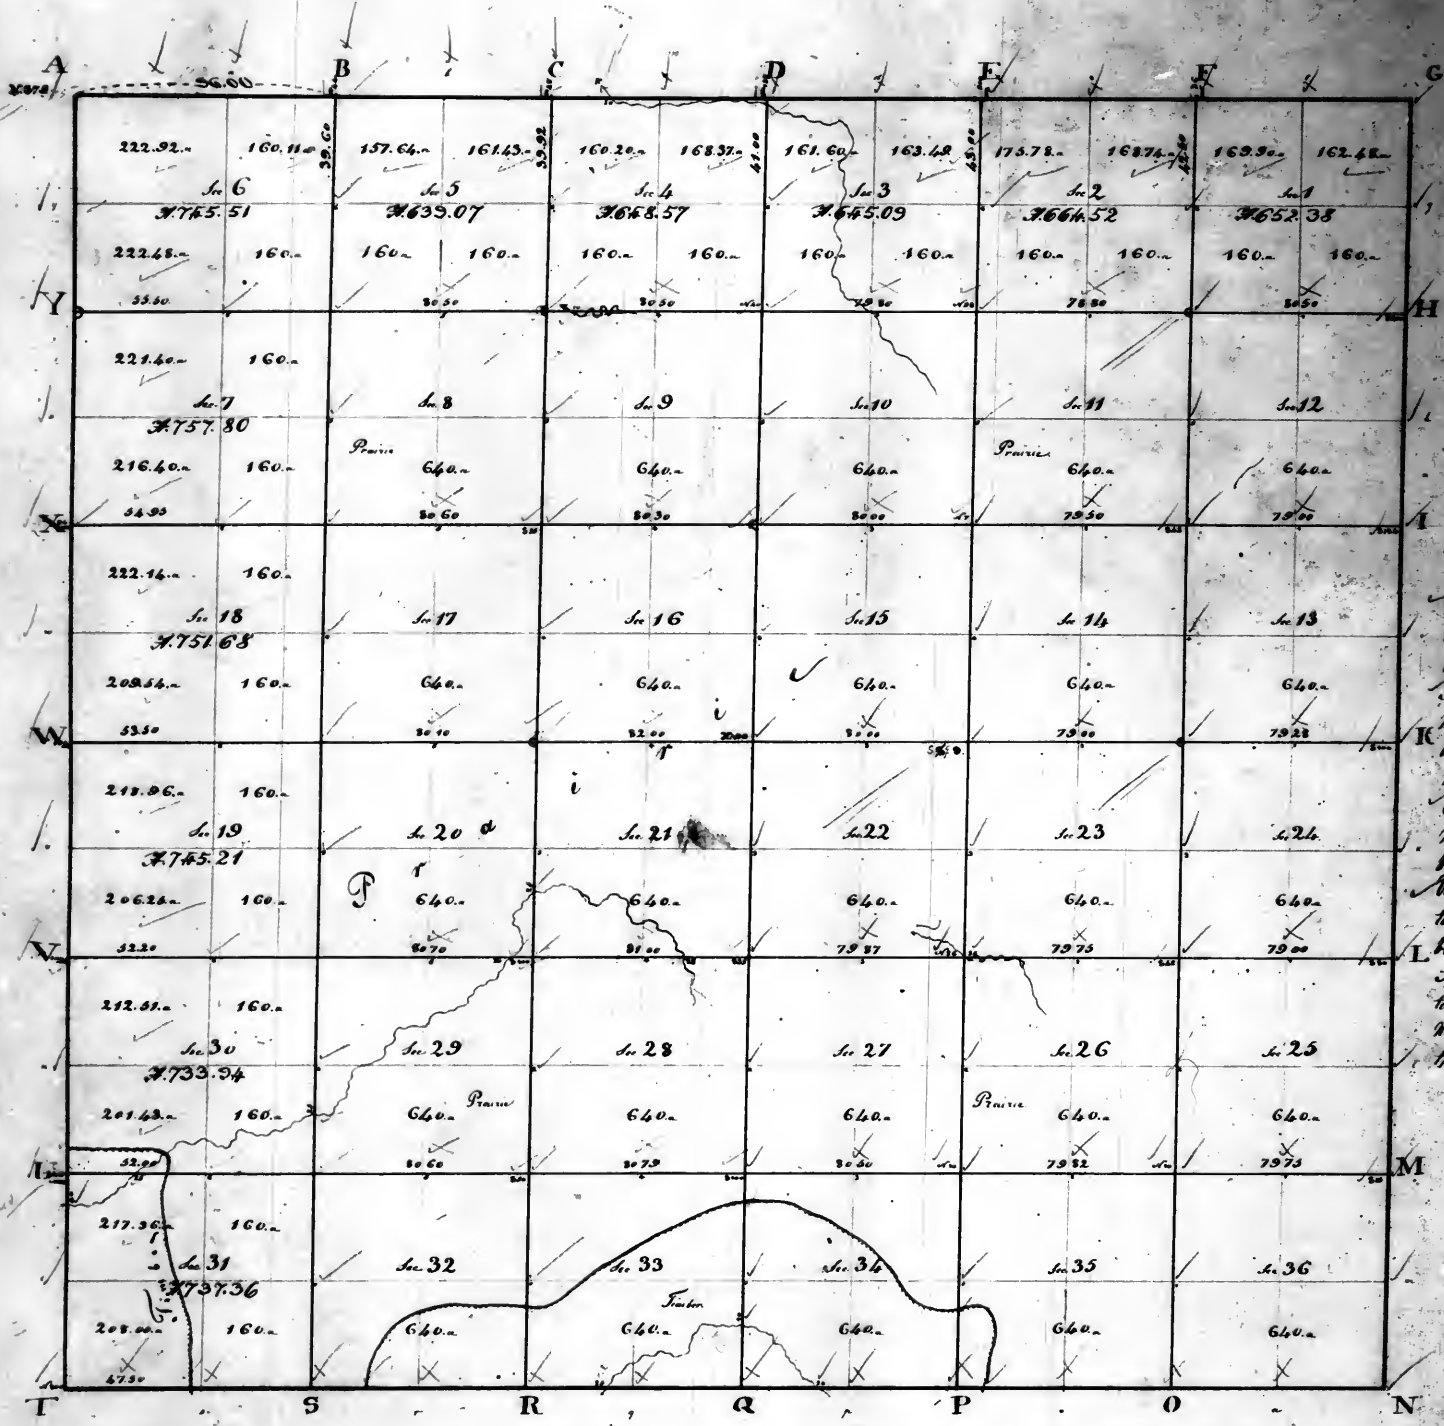 A B C D E F G
56.00
222.92.a 160.11.a 39.60 157.64.a 161.43.a 39.92 160.20.a 168.37.a 41.00 161.60.a 163.49 175.78.a 168.74.a 169.90.a 162.48.a
Sec 6 Sec 5 Sec 4 Sec 3 Sec 2 Sec 1
A.745.51 A.639.07 A.648.57 A.645.09 A.664.52 A.652.38
222.48.a 160.a 160.a 160.a 160.a 160.a 160.a 160.a 160.a 160.a 160.a 160.a
Y 55.50 80 50 80 50 79 80 78 80 80 50 H
221.40.a 160.a
Sec 7 Sec 8 Sec 9 Sec 10 Sec 11 Sec 12
A.757.80
Prairie Prairie
216.40.a 160.a 640.a 640.a 640.a 640.a 640.a
X 54.95 80 60 80 30 80 00 79 50 79 00 I
222.14.a 160.a
Sec 18 Sec 17 Sec 16 Sec 15 Sec 14 Sec 13
A.751.68
209.54.a 160.a 640.a 640.a 640.a 640.a 640.a
W 53.50 80 10 82 00 80 00 79 00 79 28 K
218.96.a 160.a
Sec 19 Sec 20 Sec 21 Sec 22 Sec 23 Sec 24
A.745.21
P r a i r i
206.25.a 160.a 640.a 640.a 640.a 640.a 640.a
V 52.20 80 70 81 00 79 87 79 75 79 00 L
212.51.a 160.a
Sec 30 Sec 29 Sec 28 Sec 27 Sec 26 Sec 25
A.733.94
Prairie Prairie
201.43.a 160.a 640.a 640.a 640.a 640.a 640.a
52.00 80 60 80 79 80 50 79 82 79 75 M
217.36.a 160.a
Sec 31 Sec 32 Sec 33 Sec 34 Sec 35 Sec 36
A.737.36
Timber
Timber
208.00.a 160.a 640.a 640.a 640.a 640.a 640.a
47.50
T S R Q P O N